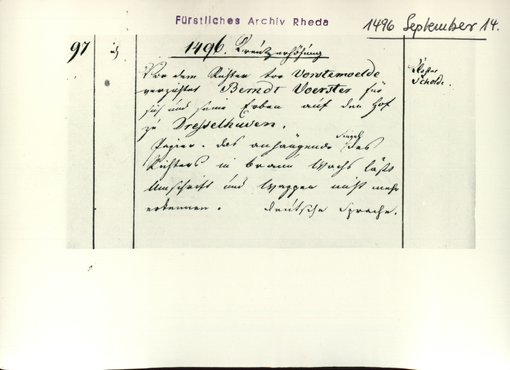 Fürstliches Archiv Rheda
1496 September 14.
97
1496. Kreutzerhöhung
Kloster
Vor dem Richter tor Vorstenwolde
verzichtet Berndt Voerster für
sich und seine Erben auf den Hof
zu Dresselhusen.
Papier. das anhängende Siegel des
Richters in braun Wachs läßt
Umschrift und Wappen nicht mehr
erkennen. deutsche Sprache.